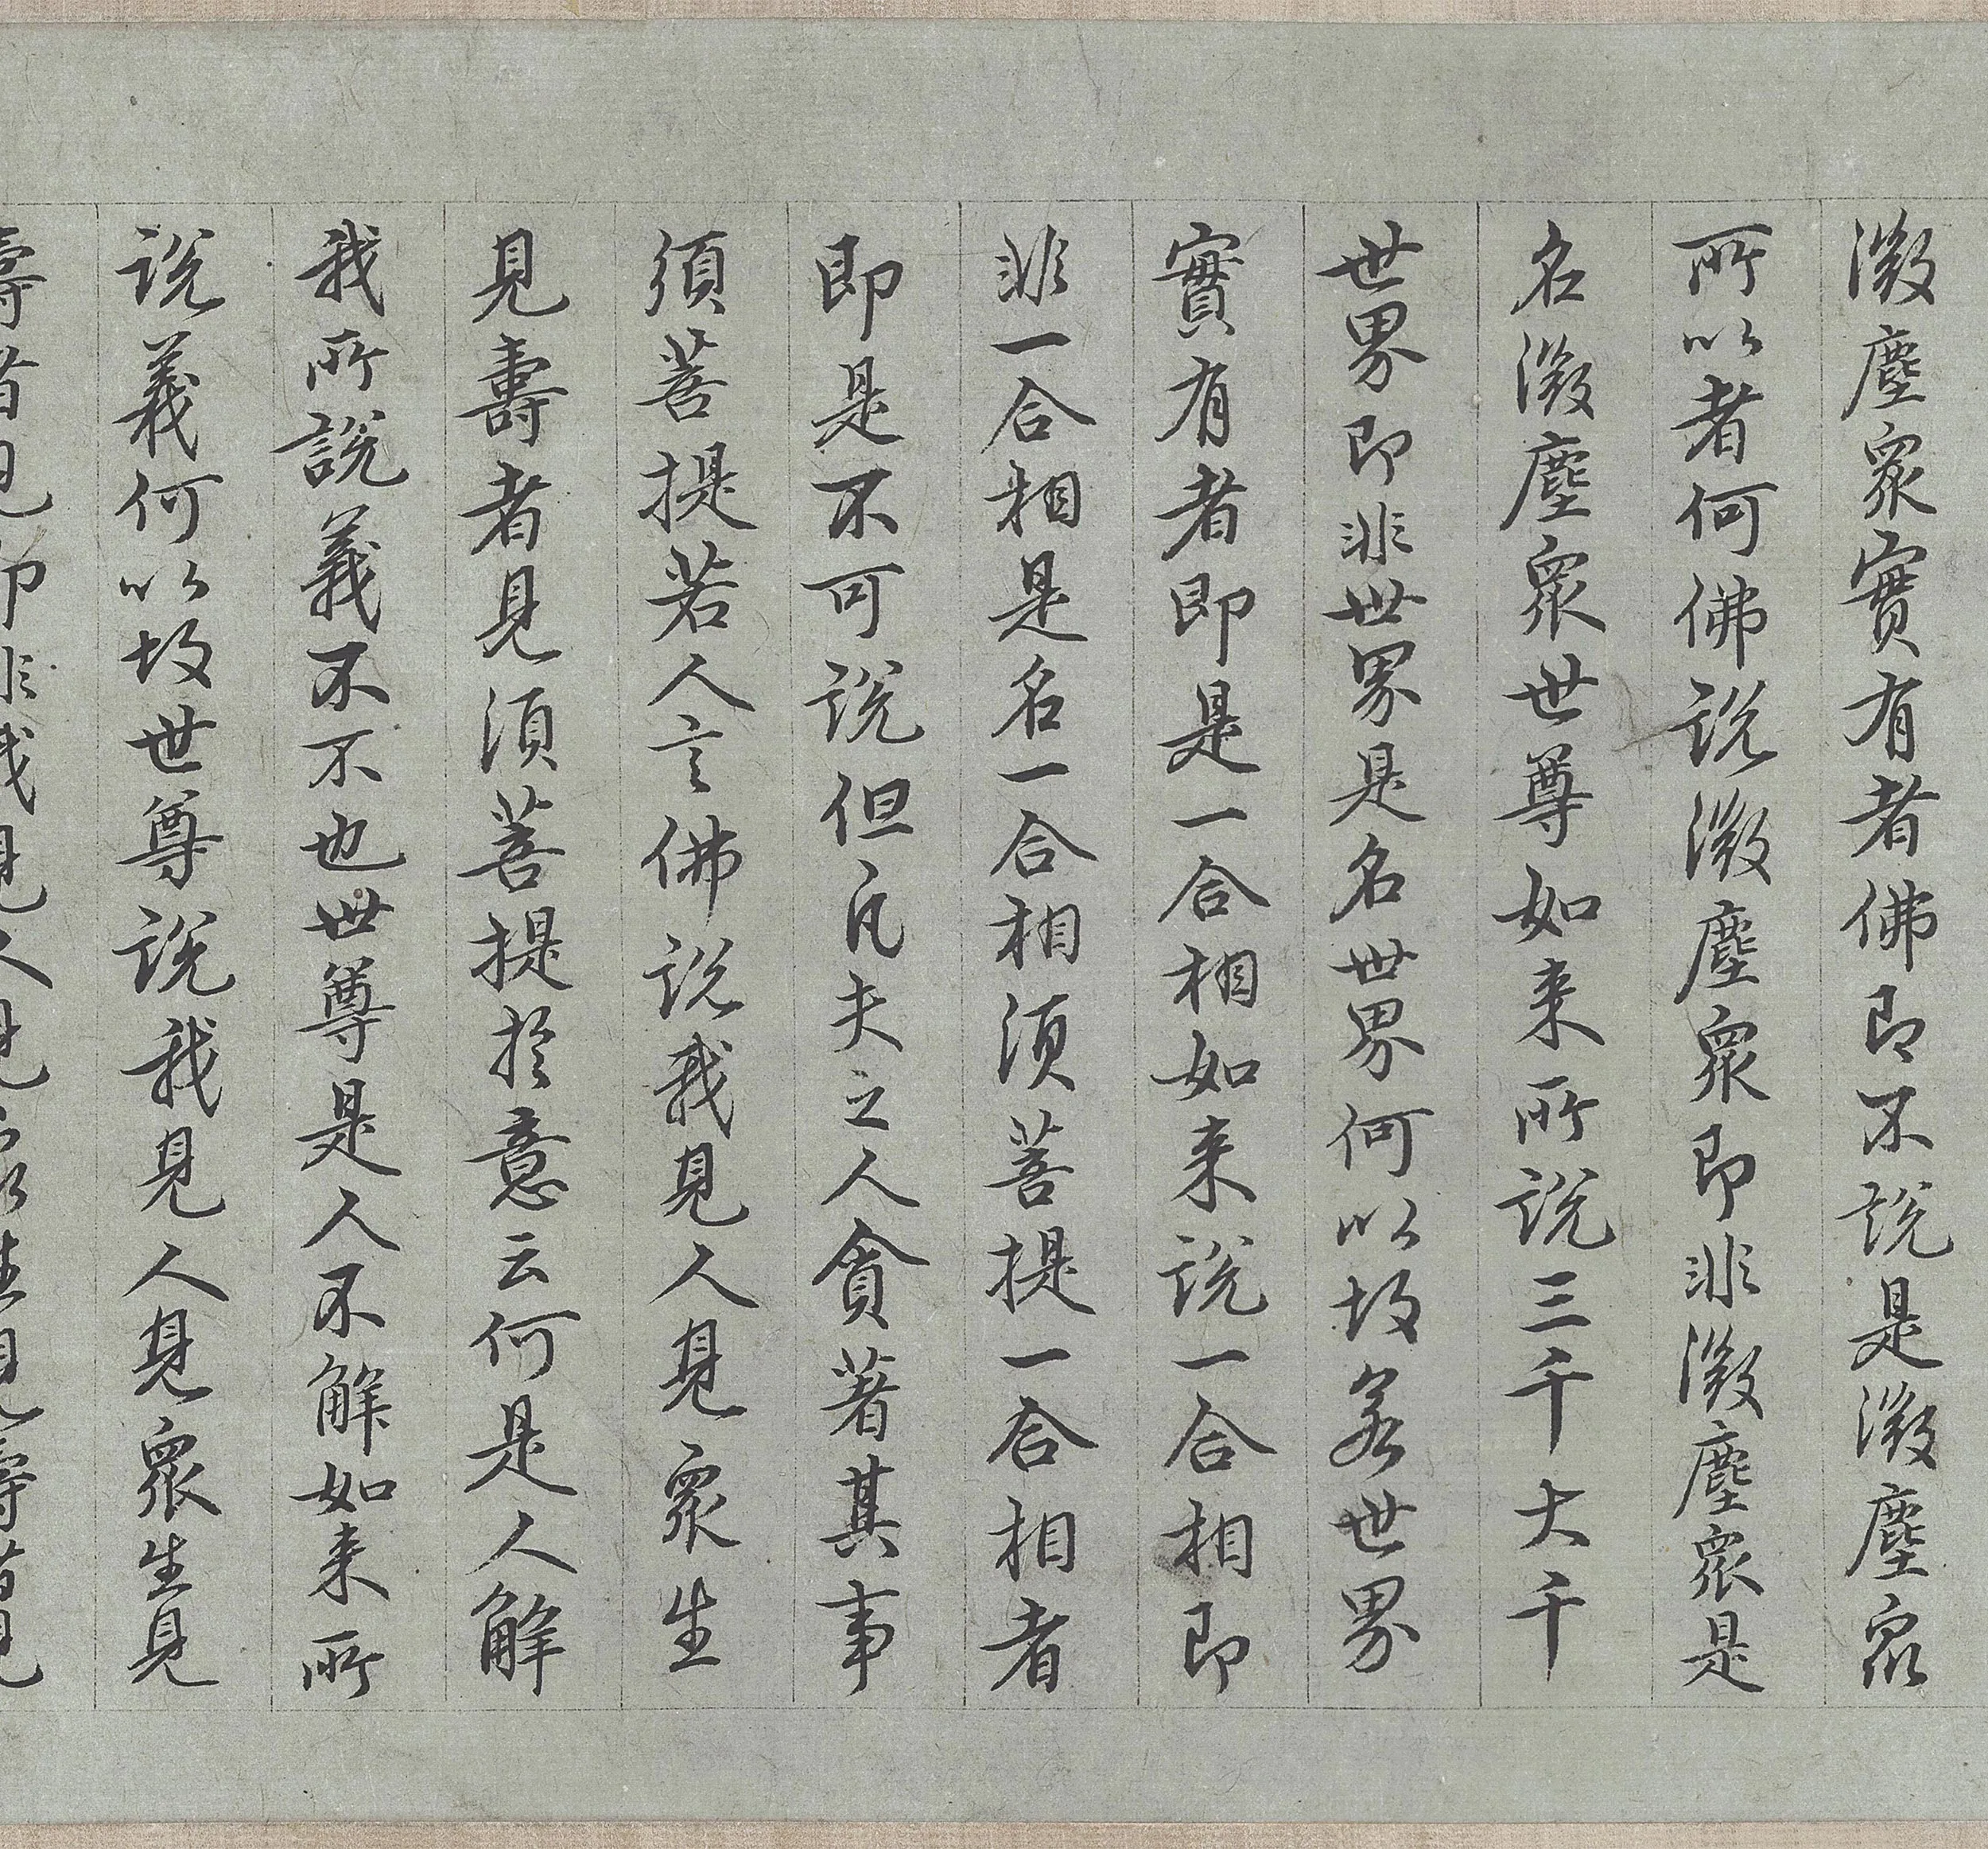 微塵眾實有者佛即不說是微塵眾
所以者何佛說微塵眾即非微塵眾是
名微塵眾世尊如来所說三千大千
世界即非世界是名世界何以故若世界
實有者即是一合相如来說一合相即
非一合相是名一合相須菩提一合相者
即是不可說但凡夫之人貪著其事
須菩提若人言佛說我見人見眾生
見壽者見須菩提於意云何是人解
我所說義不不也世尊是人不解如来所
說義何以故世尊說我見人見眾生見
壽者見即非我見人見眾生見壽者見